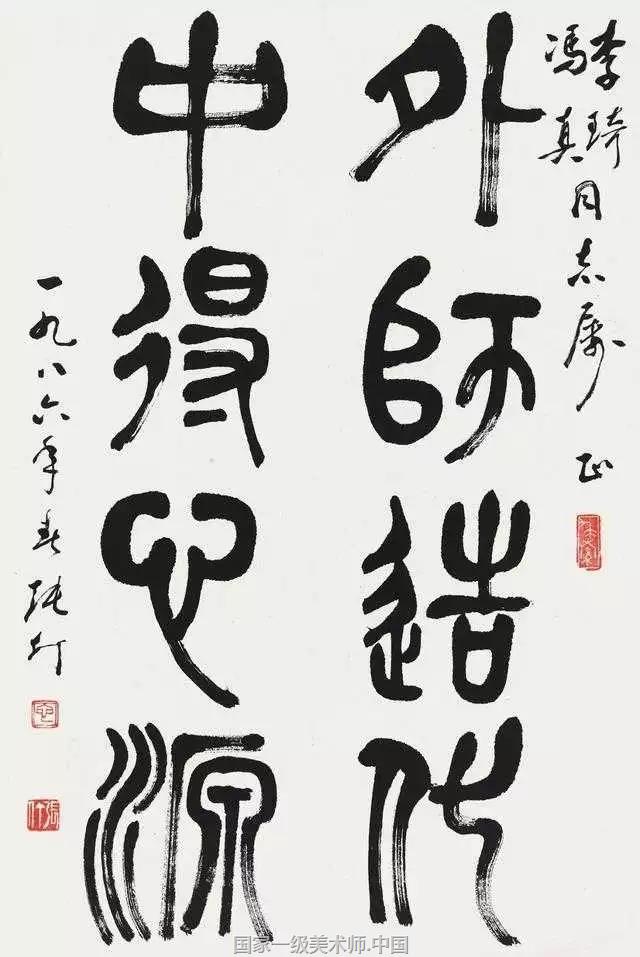 李琦
冯真
同志属正
外師造化
中得心源
一九八六年春张仃
张仃
国家一级美术师.中国